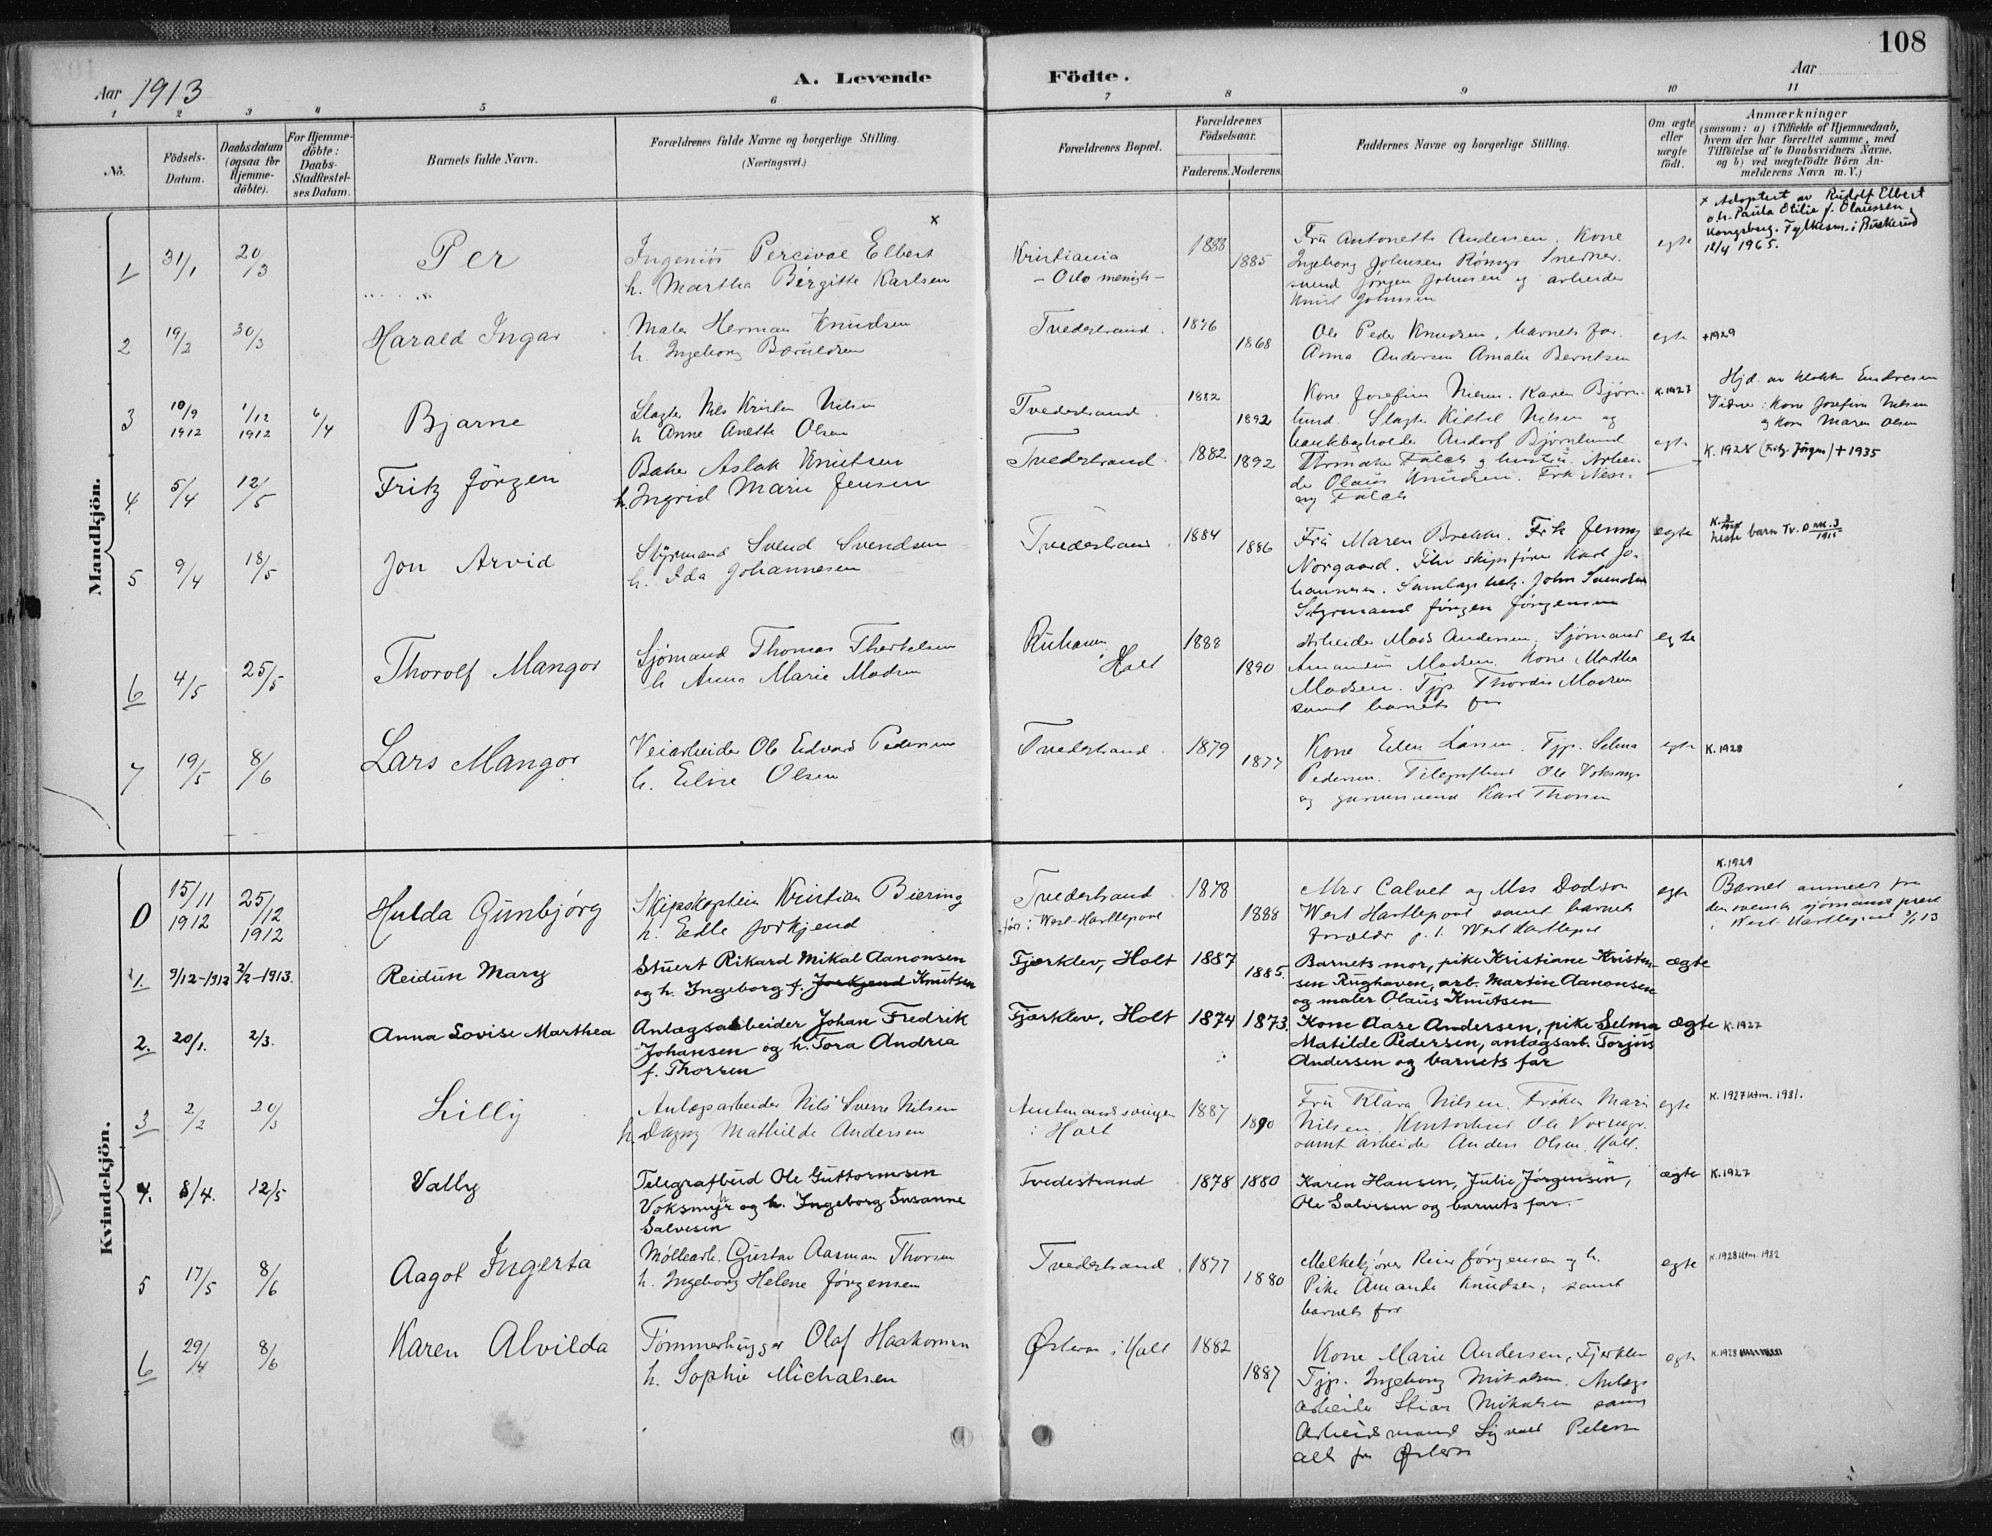 108
A. Levende Födte.
Aar 1913
Aar
1 2 3 4 5 6 7 8 9 10 11
No.
Födsels-Datum.
Daabsdatum (ogsaa for Hjemme-döbte).
For Hjemme-döbte: Daabs-Stadfæstel-ses Datum.
Barnets fulde Navn.
Forældrenes fulde Navne og borgerlige Stilling. (Næringsvei.)
Forældrenes Bopæl.
Forældrenes Födselsaar.
Faderens. Moderens.
Faddernes Navne og borgerlige Stilling.
Om ægte eller uægte födt.
Anmærkninger
(saasom: a) i Tilfælde af Hjemmedaab,
hvem der har forrettet samme, med
Tilföielse af to Daabsvidners Navne,
og b) ved uægtefödte Börn An-
melderens Navn m. V.)
Mandkjön.
x Adoptert av Rudolf Elbert
o.h. Paula Otilie f. Olaussen,
Kongsberg. Fylkesm. i Buskerud
12/4 1965.
1 31/1 20/3 Per
Ingeniör Percival Elbert x
h. Martha Birgitte Karlsen
Kristiania
- Oslo menigh -
1888 1885
Fru Antonette Andersen. Kone
Ingeborg Johnsen
svend Jörgen Johnsen og arbeider
Knut Johnsen
egte
2 19/2 30/3 Harald Ingar
Maler Herman Knudsen
h. Ingeborg
Tvedestrand.
1876 1868
Ole Peder Knudsen, barnets far.
Anna Andersen Amalie Berntsen
egte
+1929
3 10/9 1912 1/12 1912 6/4 Bjarne
Slagter Nils Kristen Nilsen
h. Anne Anette Olsen
Tvedestrand
1882 1892
Kone Josefine Nilsen. Karen Bjørn-
lund. Slagter Kittel Nilsen og
Andorf Bjørnlund
K.1923
egte
Hjd. av klokker Endresen
Vidner: Kone Josefine Nilsen
og kone Maren Olsen
4. 5/4 12/5 Fritz Jörgen
Baker Aslak Knutsen
h. Ingrid Marie Jensen
Tvedestrand.
1882 1892
Falch og hustru. Arbei-
der Olaus Knudsen. Frk
og Falch
K. 1928 (Fritz Jörgen) + 1935
5 9/4 18/5 Jon Arvid
Styrmand Svend Svendsen
h. Ida Johannesen
Tvedestrand.
1884 1886
Fru Maren Brekke. Frk Jenny
Norgaard. Fhv skipsförer Karl Jo-
hannesen. Samlagsbest. John Svendsen
Styrmand Jörgen Jörgensen
egte
neste barn Tv. D
6 4/5 25/5 Thorolf Mangor
Sjömand Thomas Therkelsen
h. Anna Marie Madsen
Holt
1888 1890
Arbeider Mads Andersen. Sjömand
Amandus Madsen. Kone Martha
Madsen. Tjp. Thordis Madsen
samt barnets far
egte
7 19/5 8/6 Lars Mangor
Veiarbeider Ole Edvard Pedersen
h. Elise Olsen
Tvedestrand.
1879 1877
Kone Ellen Larsen. Tjp. Selma
Pedersen. Telegrafbud Ole Voksmyr
og garversvend Karl Thorsen
egte
K. 1928
Kvindekjön.
0 15/11 1912 25/12 1912 Hulda Gunbjörg
Skipskaptein Kristian Biering
h. Edle Jorkjend
Tvedestrand
før i West-Hartlepool
1878 1888
Mrs Calvet og Mss Dodson
West Hartlepool samt barnets
forældr p. t. West Hartlepool
egte
K. 1929
Barnet anmeldt fra
den svenske sjömands prest
i West Hartlepool
1. 9/12-1912 2/2-1913. Reidun Mary
Stuert Rikard Mikal Aanonsen
og h. Ingeborg f. Jorkjend Knutsen
Fjærklev, Holt
1887 1885.
Barnets mor, pike Kristiane Kristen-
sen Rughaven, arb. Martin Aanonsen
og maler Olaus Knutsen
ægte
2. 20/1. 2/3. Anna Lovise Marthea
Anlægsarbeider Johan Fredrik
Johansen og h. Tora Andrea
f. Thorsen
Fjærklev, Holt
1874 1873.
Kone Aase Andersen, pike Selma
Matilde Pedersen, anlægsarb. Torjus
Andersen og barnets far
ægte
K. 1927
3 2/2 20/3 Lilly
Anlægsarbeider Nils Sverre Nilsen
h. Dagny Mathilde Andersen
Amtmandssvingen
i Holt
1887 1890
Fru Klara Nilsen. Frøken Marie
Nilsen. Kontorbud Ole Voxmyr.
samt arbeider Anders Olsen Holt.
egte
K. 1927 Utm. 1931.
4. 8/4. 12/5 Valby
Telegrafbud Ole Guttormsen
Voksmyr og h. Ingeborg Susanne
Salvesen
Tvedestrand
1878 1880
Karen Hansen, Julie Jørgensen,
Ole Salvesen og barnets far.
ægte
K. 1927
5 17/5 8/6 Aagot Ingerta
Møllearb. Gustav Aasman Thorsen
h. Ingeborg Helene Jørgensen
Tvedestrand.
1877 1880
Melkekjører Jørgensen og h.
Pike Amanda Knudsen, samt
barnets far
egte
K. 1928 Utm. 1932
6 29/4 8/6 Karen Alvilda
Tömmerhugger Olaf Haakonsen
h. Sophie Michalsen
Østerå i Holt
1882 1887
Kone Marie Andersen, Fjerklev
Tjp. Ingeborg Mikalsen. Anlægs
arbeider Mikalsen samt
Arbeidsmand Sigvald Petersen
alle fra Østerå
egte
K. 1928